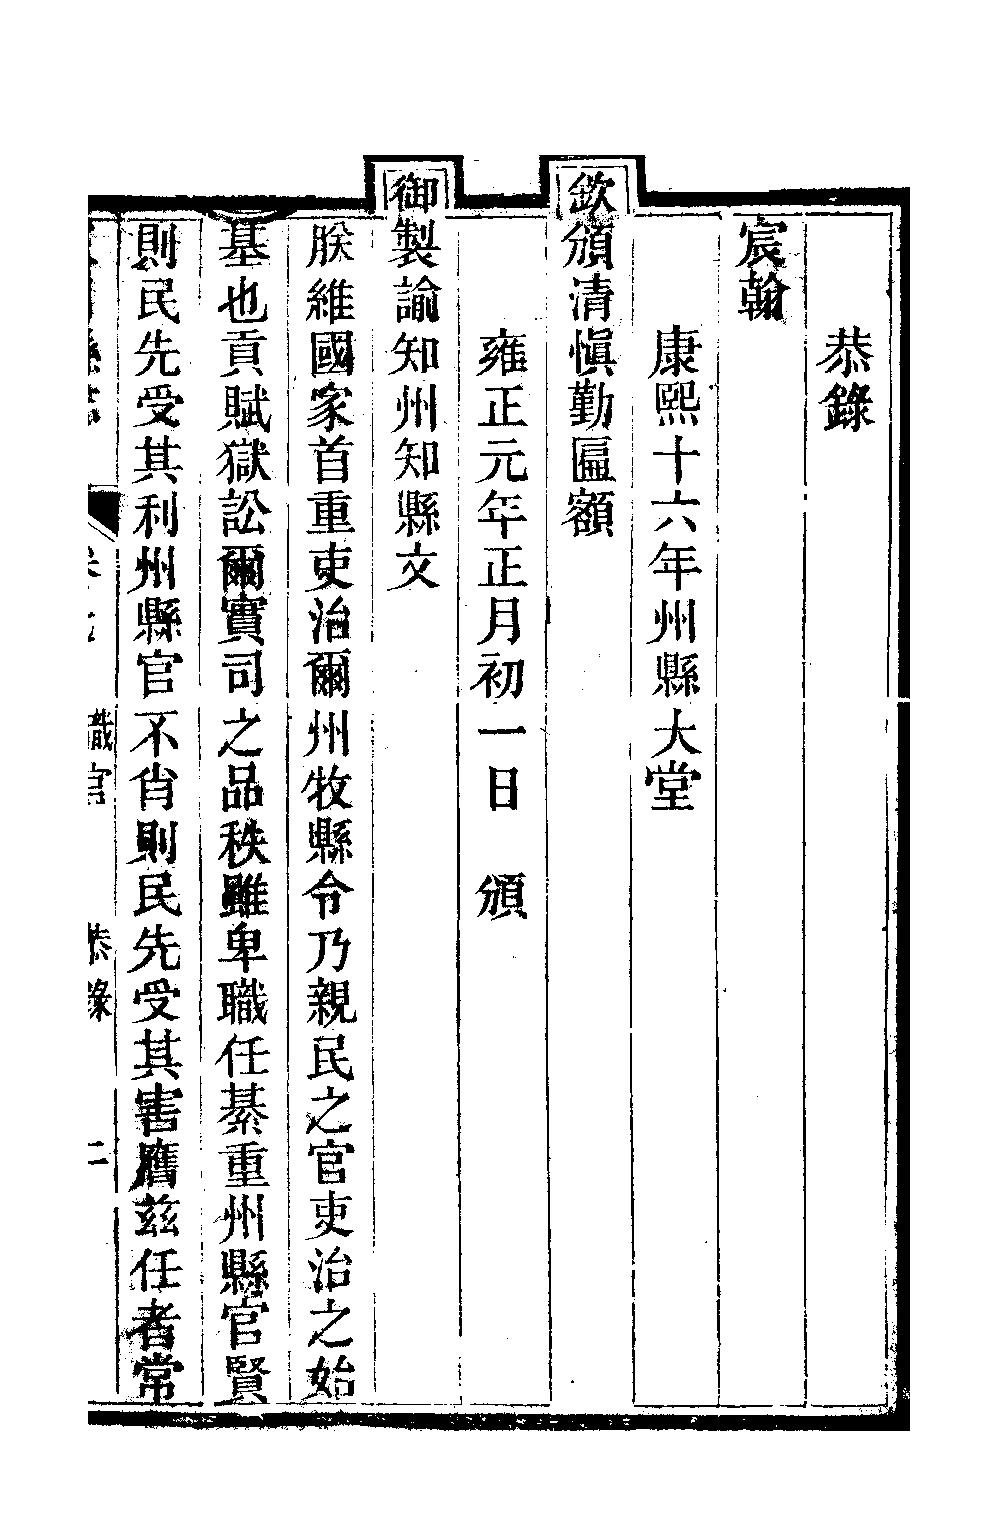 恭錄
宸翰
康熙十六年州縣大堂
欽頒清愼勤匾額
雍正元年正月初一日　頒
御製諭知州知縣文
朕維國家首重吏治爾州牧縣令乃親民之官吏治之始
基也貢賦獄訟爾實司之品秩雖卑職任綦重州縣官賢
則民先受其利州縣官不肖則民先受其害膺茲任者常
職官　恭錄　二